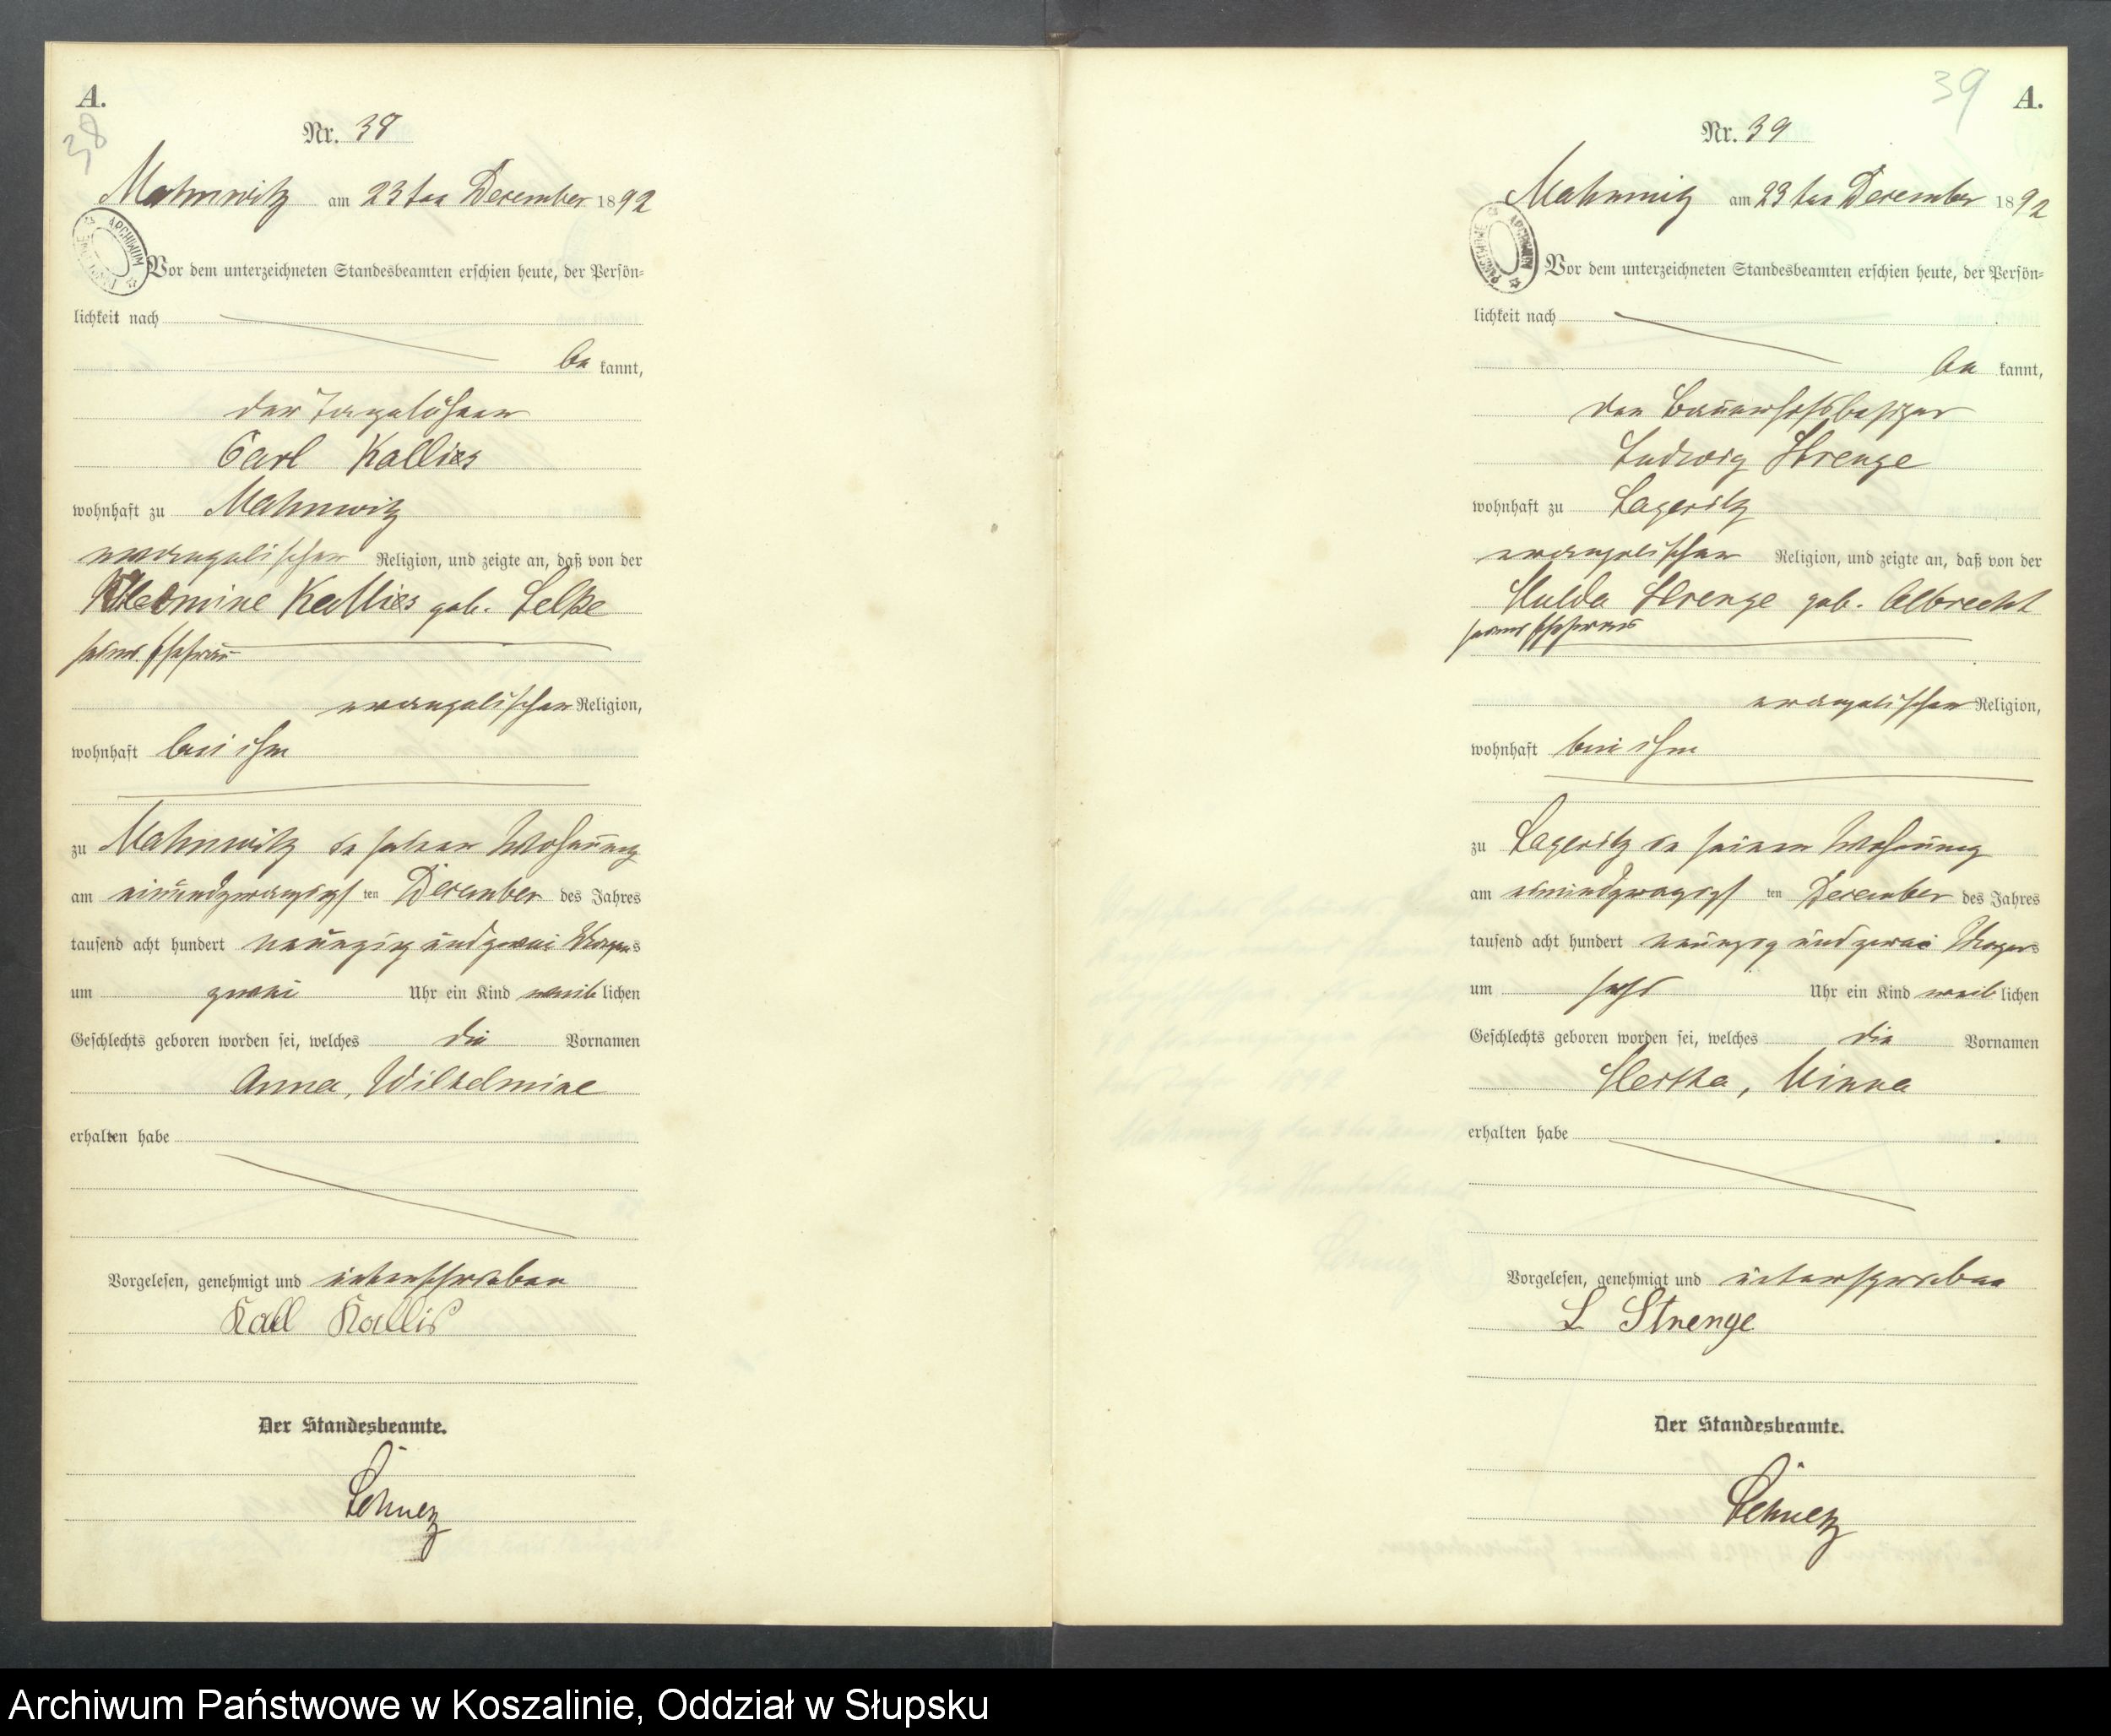 A.
38
Nr. 38
Mahnwitz am 23ten December 1892
ARCHIWUM
Vor dem unterzeichneten Standesbeamten erschien heute, der Persön=
lichkeit nach
be kannt,
der Tagelöhner
Carl Kallies
wohnhaft zu Mahnwitz
evangelischer Religion, und zeigte an, daß von der
Kallies geb. Selke
seiner Ehefrau
evangelischer Religion,
wohnhaft bei ihm
zu Mahnwitz in seiner Wohnung
am einundzwanzigst ten December des Jahres
tausend acht hundert neunzig und zwei Morgens
um zwei Uhr ein Kind weib lichen
Geschlechts geboren worden sei, welches die Vornamen
Anna, Wilhelmine
erhalten habe
Vorgelesen, genehmigt und unterschrieben
Karl Kallis
Der Standesbeamte.
39
A.
Nr. 39
Mahnwitz am 23ten December 1892
PAŃSTWOWE ARCHIWUM
Vor dem unterzeichneten Standesbeamten erschien heute, der Persön=
lichkeit nach
be kannt,
der Bauerhofsbesitzer
Ludwig Strenge
wohnhaft zu Lageritz
evangelischer Religion, und zeigte an, daß von der
Hulda Strenge geb. Albrecht
seiner Ehefrau
evangelischer Religion,
wohnhaft bei ihm
zu Lageritz in seiner Wohnung
am einundzwanzigst ten December des Jahres
tausend acht hundert neunzig und zwei Morgens
um sechs Uhr ein Kind weib lichen
Geschlechts geboren worden sei, welches die Vornamen
Hertha, Minna
erhalten habe
Vorgelesen, genehmigt und unterschrieben
L Strenge
Der Standesbeamte.
Archiwum Państwowe w Koszalinie, Oddział w Słupsku